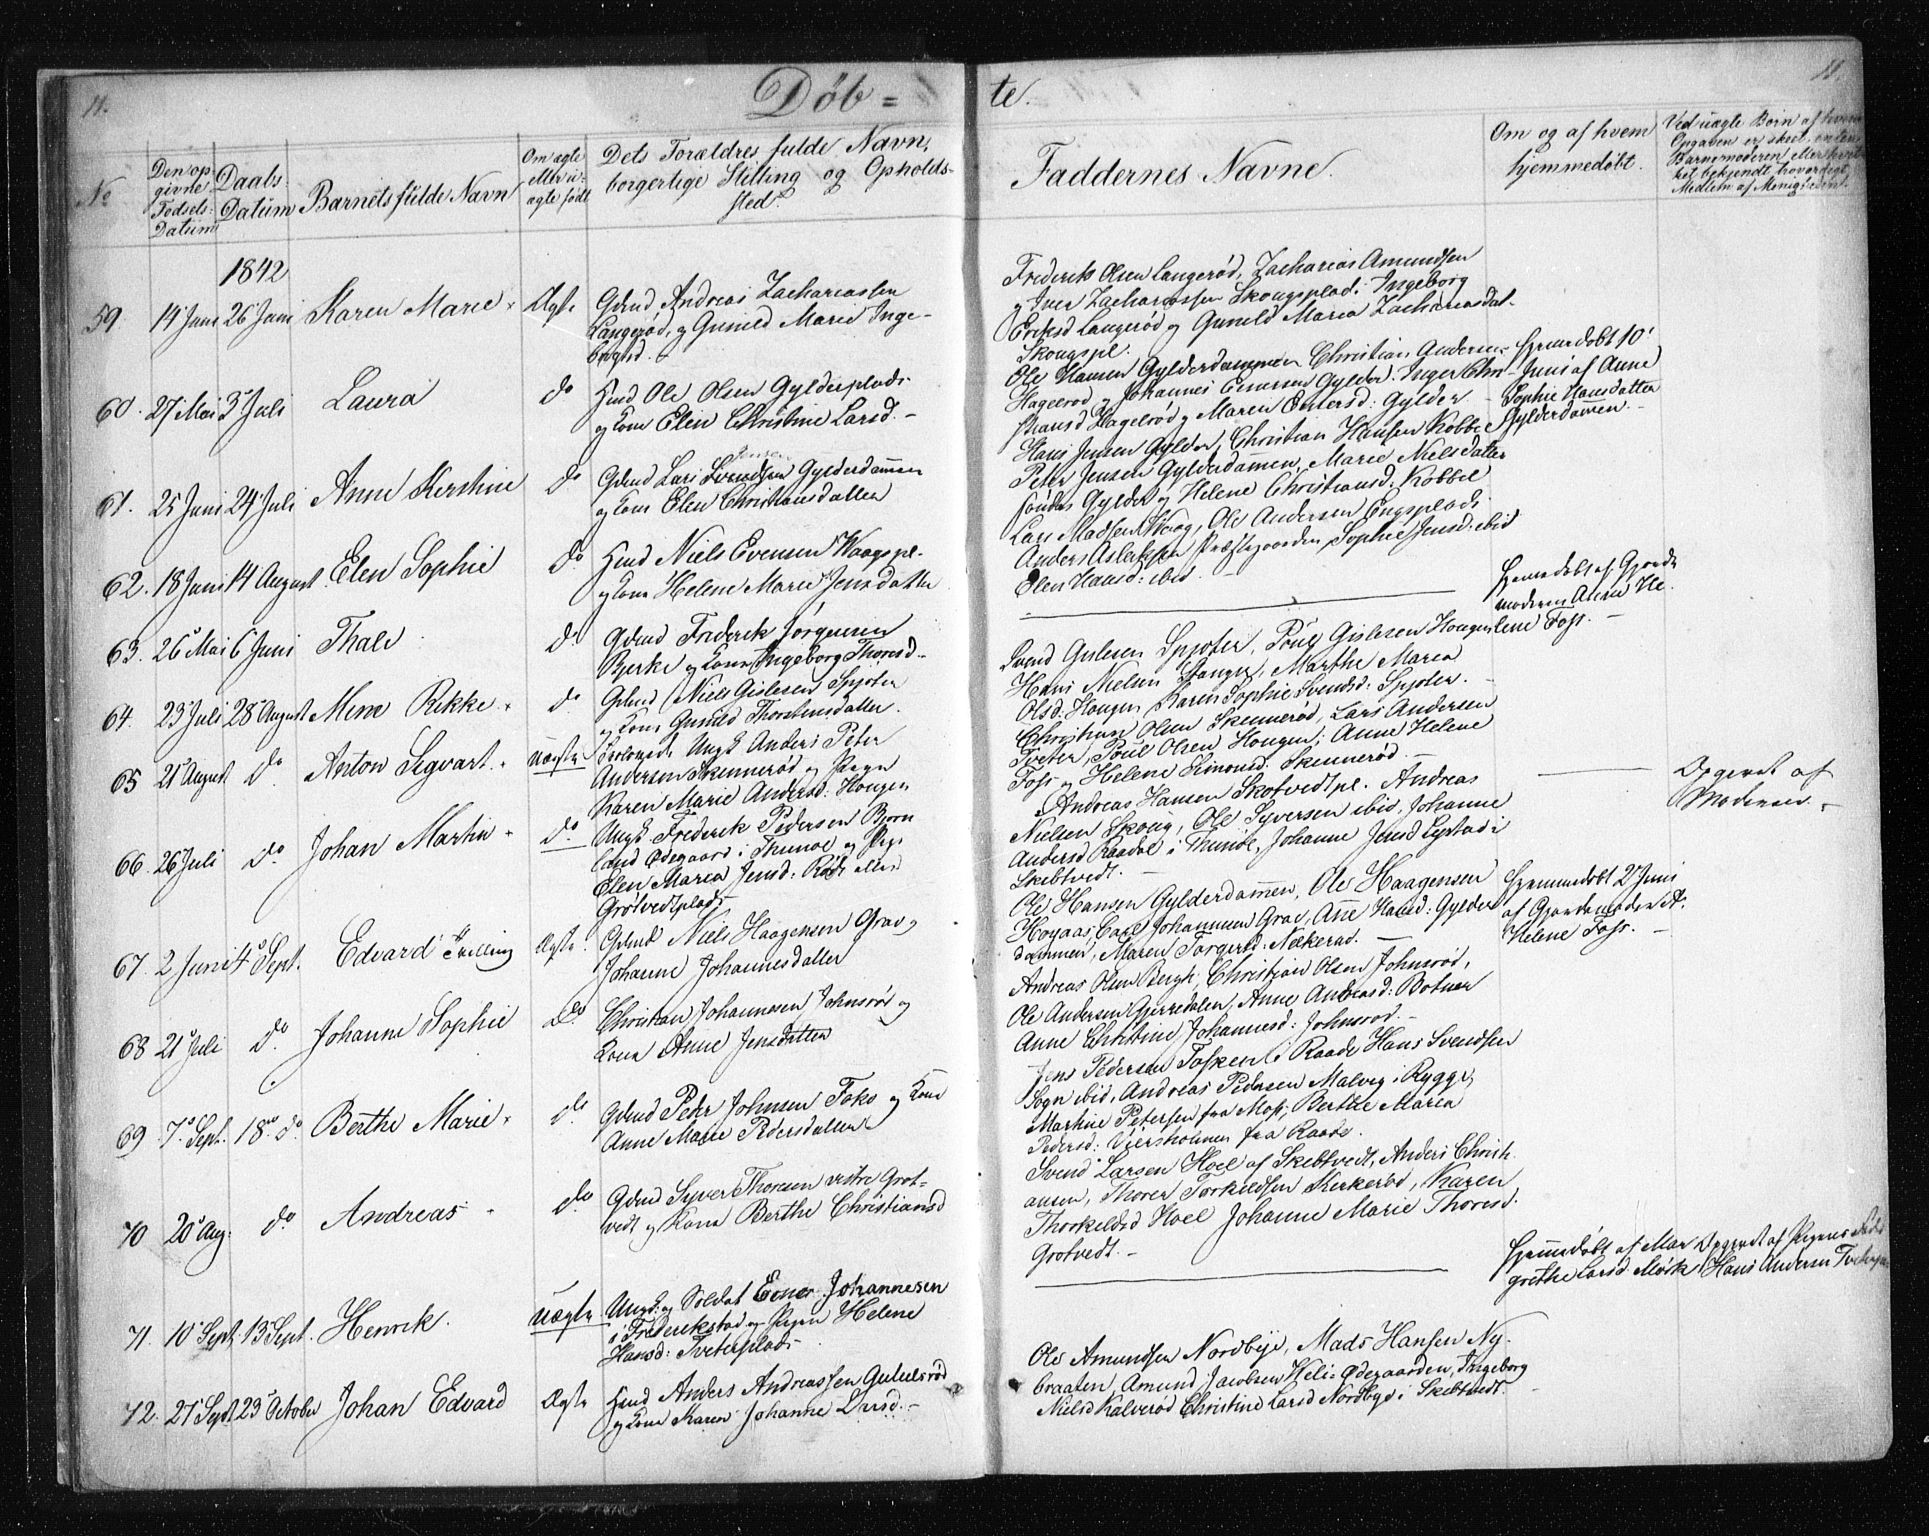 11.
Döb = te.
11.
No
Den op
givne
Fødsels-
Datum
Daabs
Datum
Barnets fulde Navn
Om ægte
eller u-
ægte født
Dets Forældres fulde Navn,
borgerlige Stilling og Opholds-
sted.
Faddernes Navne.
Om og af hvem
hjemmedøbt.
Ved uægte Børn af hvem
Opgaven er skeet, enten
Barnemoderen eller
bekjendt troværdigt
Medlem af Menigheden.
1842
59. 14 Juni 26 Juni Karen Marie Ægte
Gdmd Andreas Zachariassen
Langerød, og Gunild Marie Inge-
brigtsd.
Frederik Olsen Langerød, Zacharias Amundsen
og Iver Zachariassen Skougsplads: Ingeborg
Eriksd Langerød og Gunild Maria Zachariasdat.
Skougspl.
60. 27 Mai 3 Juli Laura do
Hmd Ole Olsen Gylderplads
og Kone Elen Christine Larsd.
Ole Hansen Gylderdammen Christian Andersen
Hagelrød og Johannes Gylder. Inger Chri-
stiansd Hagelrød og Maren Gylder
Hjemdøbt 10'
Juni af Anne
Sophie Hansdatter
Gylderdammen.
61. 25 Juni 24 Juli Anne Kirstine do
Gdmd Lars Svendsen Gylderdammen
Jensen
og Kone Elen Christiansdatter
Hans Jensen Gylder, Christian Hansen Kobbel
Peter Jensen Gylderdammen, Marie Nielsdatter
søndre Gylder og Helene Christiansd: Kobbel
62. 18 Juni 14 August. Elen Sophie do
Hmd Niels Evensen Waagspl.
og Kone Helene Marie Jensdatter
Lars Madsen Waag, Ole Andersen Engsplads
Anders Aslaksen Præstegaarden, Sophie Jensd: ibid
Elen Hansd: ibid.
63. 26 Mai 6 Juni Thale do
Gdmd Frederik Jørgensen
Bjerke og Kone Ingeborg Thoresd.
Hjemdøbt af Gjorde
moderen Anne He-
lene Foss.
64. 23 Juli 28 August Mine Rikke do
Gdmd Niels Gislesen Spjøter
og Kone Gunild Thorstensdatter.
Svend Gislesen Spjøter, Poul Gislesen Hougen
Hans Nielsen Stanger, Marthe Maria
Olsd: Hougen Karen Sophie Svendsd: Spjøter.
65 21 August do Anton Sigvart. Uægte
Ungk Anders Peter
Andersen Skennerød og Pigen
Karen Marie Andersd: Hougen
Christian Olsen Skennerød, Lars Andersen
Tveter, Poul Olsen Hougen; Anne Helene
Foss og Helene Simonsd: Skennerød.
66 26 Juli do Johan Martin do
Ungk Frederik Pedersen Bjørn
land Ødegaard i Thunøe og Pige
Elen Maria Jensd: Røds eller
Grøtvedtplads
Andreas Hansen Skotvedtpl. Andreas
Nielsen Skoug, Ole Syversen ibid, Johanne
Andersd Raadal i Thunøe, Johanne Jensd Lystad i
Skibtvedt.
Opgivet af
Moderen.
67. 2 Juni 4 Sept. Edvard Trilling Ægte
Gdmd Niels Haagensen Grav og
Johanne Johannesdatter
Ole Hansen Gylderdammen, Ole Haagensen
Høyaas, Carl Johannesen Grav, Anne Hansd: Gylder
dammen, Maren Torgersd: Nækerad.
Hjemmedøbt 2 Juni
af Gjordemoder A.
Helene Foss.
68 21 Juli do Johanne Sophie do
Christian Johannesen Johnsrød og
Kone Anne Jensdatter
Andreas Olsen Bergh, Christian Olsen Johnsrød,
Ole Andersen Gjerredalen, Anne Andreasd: Botner
Anne Christine Johannesd: Johnsrød.
69 7 Sept. 18 do Berthe Marie do
Gdmd Peter Johnsen Foks og Kone
Anne Marie Pedersdatter
Jens Pedersen Tasken i Raade Hans Svendsen
Sogn ibid, Andreas Pedersen Malvey i Rygge,
Martine Petersen fra Moss, Berthe Maria
Pedersd: Veersholmen fra Raade.
70 20 Aug. do Andreas do
Gdmd Syver Thoresen vestre Grøt-
vedt og Kone Berthe Christiansd
Svend Larsen Hoel af Skibtvedt, Anders Christi
ansen, Thorer Torkildsen Kirkerød, Karen
Thorkildsd Hoel Johanne Marie Thoresd:
Grøtvedt.
71. 10 Sept 13 Sept. Henrik. Uægte
Ungk. og Soldat Ener Johannesen
i Frederikstad og Pigen Helene
Hansd: Tveterplads
Hjemmedøbt af Mar
grethe Larsd: Mørk
Opgivet af Pigens Fader
Hans Andersen
72. 21 Sept 23 October Johan Edvard Ægte
Hmd Anders Andreassen Gululsrød
og Kone Karen Johanne Larsd.
Ole Amundsen Nordbye, Mads Hansen Ny-
braaten, Amund Jacobsen Heli Ødegaarden, Ingeborg
Nielsd Kalverød Christine Larsd Nordbye i Skibtvedt.